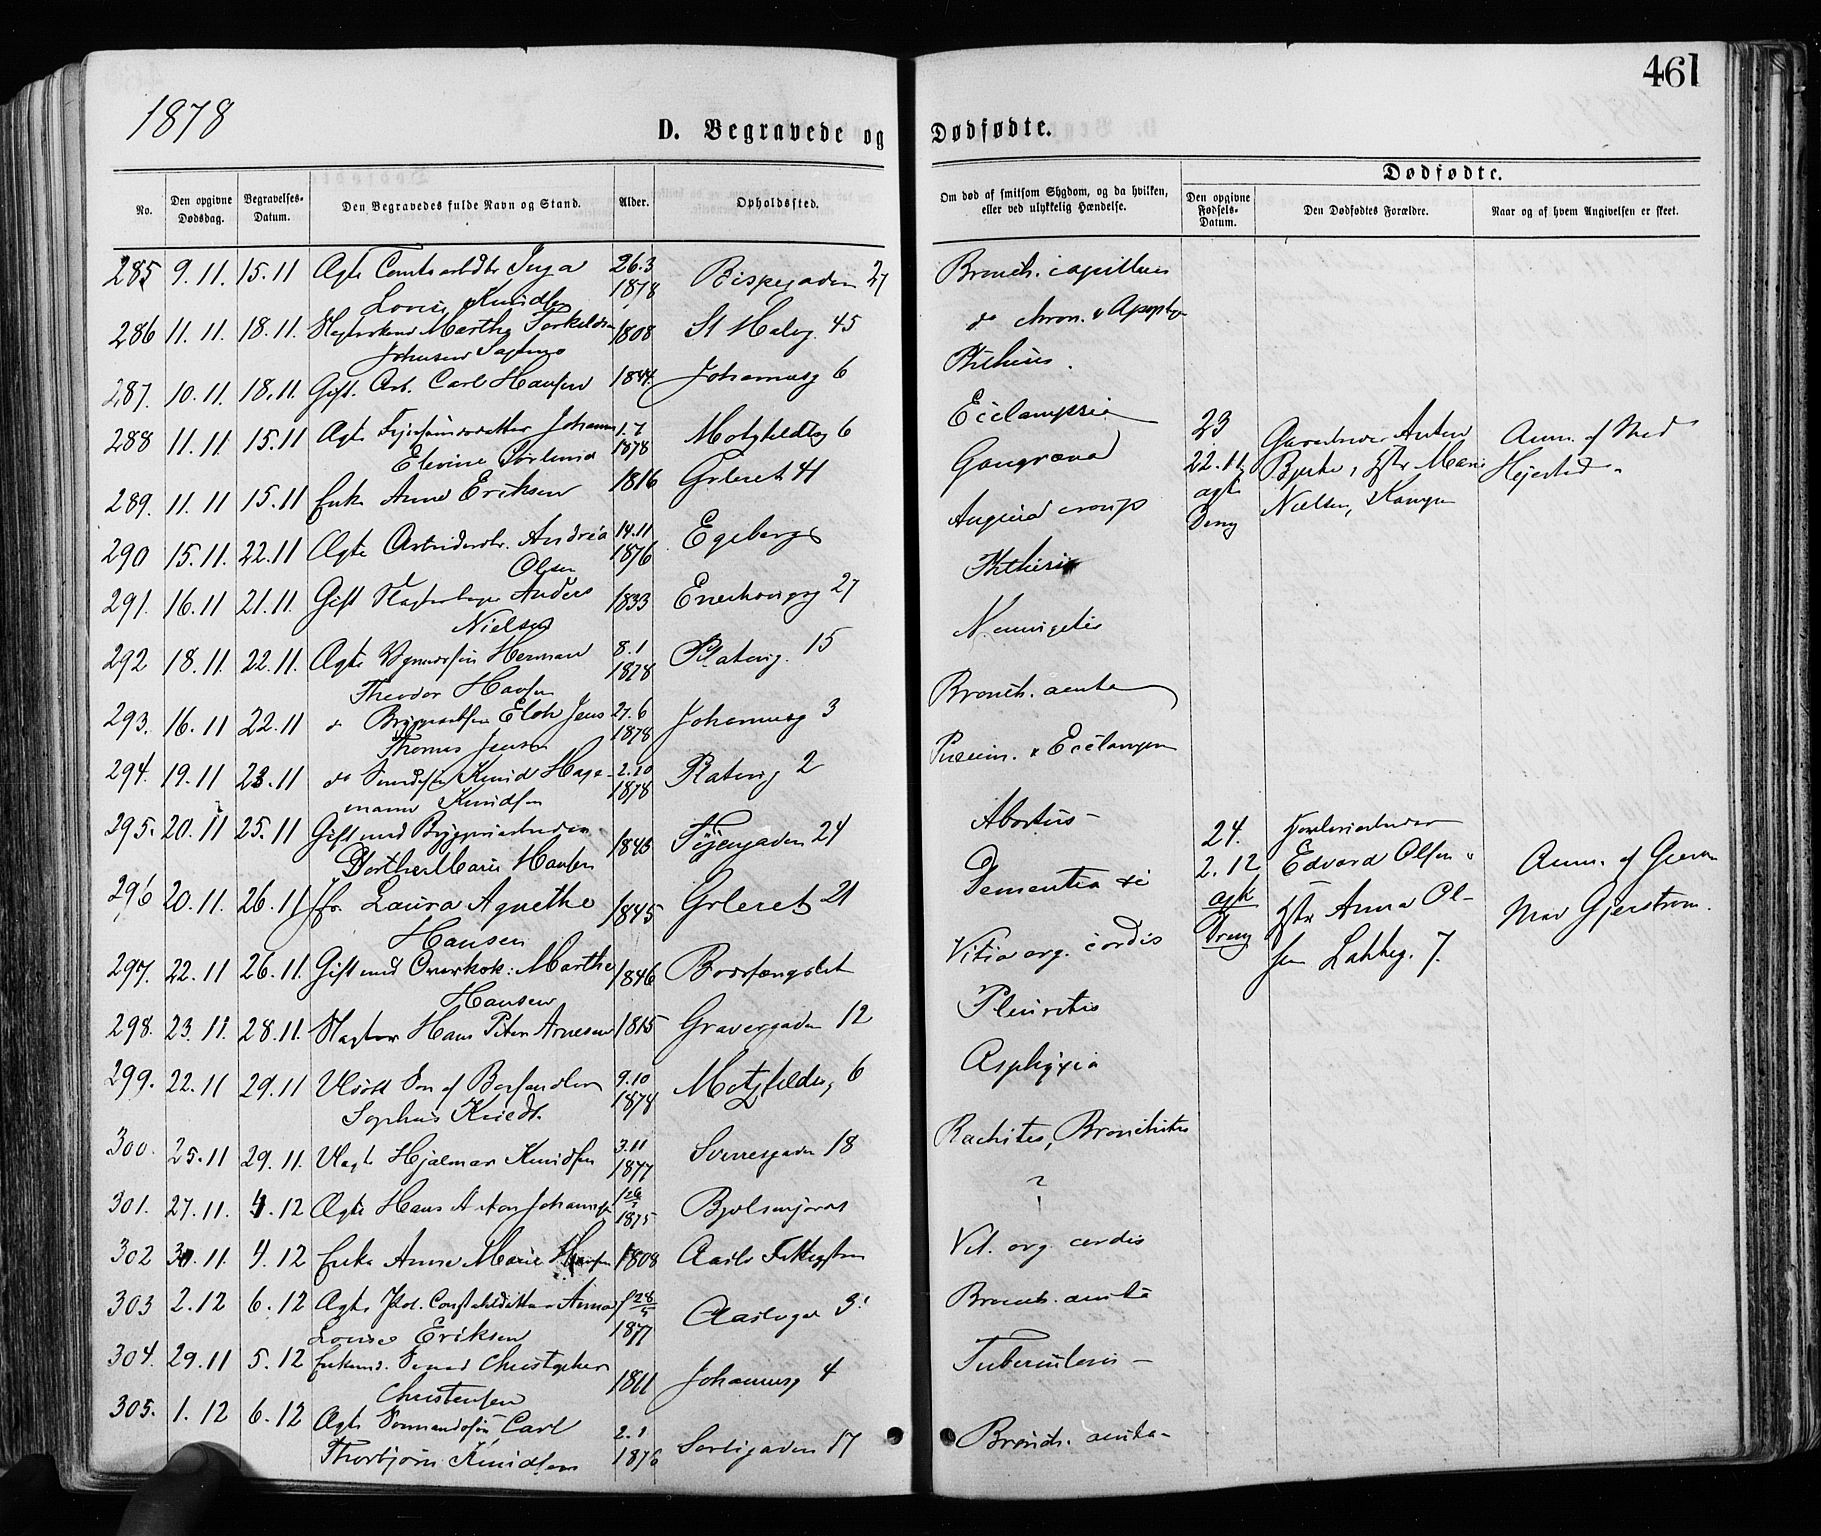 1878
461
D. Begravede og Dødfødte.
No.
Den opgivne Dødsdag.
Begravelses-Datum.
Den Begravedes fulde Navn og Stand.
Alder.
Opholdssted.
Om død af smitsom Sygdom, og da hvilken, eller ved ulykkelig Hændelse.
Dødfødte.
Den opgivne Fødsels-Datum.
Den Dødfødtes Forældre.
Naar og af hvem Angivelsen er skeet.
285 9.11. 15.11 Ægte Inga 26.3 Bispegaden 27 Bronch.
Lovise Knudsen 1878
286 11.11. 18.11. Marthe Torkildsen 1808 St Halvg. 45 do chron. & Apoplex
Johnsen
287. 10.11. 18.11. Gift. Arb. Carl Hansen 1844. Johannesg 6 Phthisis.
288 11.11. 15.11 Ægte Johanne 1.7 Motzfeldtsg 6 Ecclampsia
Elevine 1878
289. 11.11. 15.11 Enke Anne Eriksen 1816 Grleret 41 Gangræna
290 15.11. 22.11 Ægte Andrea 14.11 Egebergs Angina croup
Olsen 1876
291. 16.11 21.11. Gift Anders 1833 Enerhougsg 27 Phthisis
Nielsen
292 18.11. 22.11. Ægte Herman 8.1 Platoug. 15 Meningitis
Theodor Hansen 1878
293. 16.11 22.11 do Jens 27.6 Johannesg 3 Bronch. acuta
Thomas Jensen 1878
294. 19.11 23.11 do Knud Hage- 2.10 Platoug 2 Pneum. & Ecclampsi
mann Knudsen 1878
295. 20.11 25.11 Gift med Bryggeriarbeider 1843 Tøiengaden 24 Abortus
Dorthe Marie Hansen
296 20.11. 26.11 Jfr. Laura Agnethe 1845 Grleret 21 Dementia
Hansen
297. 22.11 26.11. Gift med Marthe 1846 Bodsfængslet Vitia org. cordis
Hansen
298. 23.11. 28.11. Hans Peter Arnesen 1815 Gravergaden 12 Pleuritis
299. 22.11 29.11 Udøbt Søn af 9.10 Motzfeldtsg 6 Asphyxia
Sophus 1878
300. 25.11 29.11. Uægte Hjalmar Knudsen 3.11 Sverresgaden 18 Rachites, Bronchites
1877
301. 27.11. 4.12 Ægte Hans Anton Johansen 1875 ?
302 30.11. 4.12 Enke Anne Marie Hansen 1808 Vit. org. cordis
303 2.12 6.12 Ægte Pol. Constabeldatter Anna f 28/5 Aasloger 3 Bronch. acuta
Louise Eriksen 1877
304. 29.11 5.12 Enkemd. Christopher 1811 Johannesg 4 Tuberculosis
Christensen
305. 1.12 6.12 Ægte Carl 2.1 Sorligaden 17 Bronch. acuta
Thorbjørn Knudsen 1876
23
22.11.
ægte
Dreng
Gaardbruger Anton
Bjerke, Hstr Marie
Nielsen, Kampen
Anm. af Mad
24.
2.12
ægte
Dreng
Edvard Olsen
Hstr Anna Ol-
sen Lakkeg. 7.
Anm. af
Mad Gjerstrom.